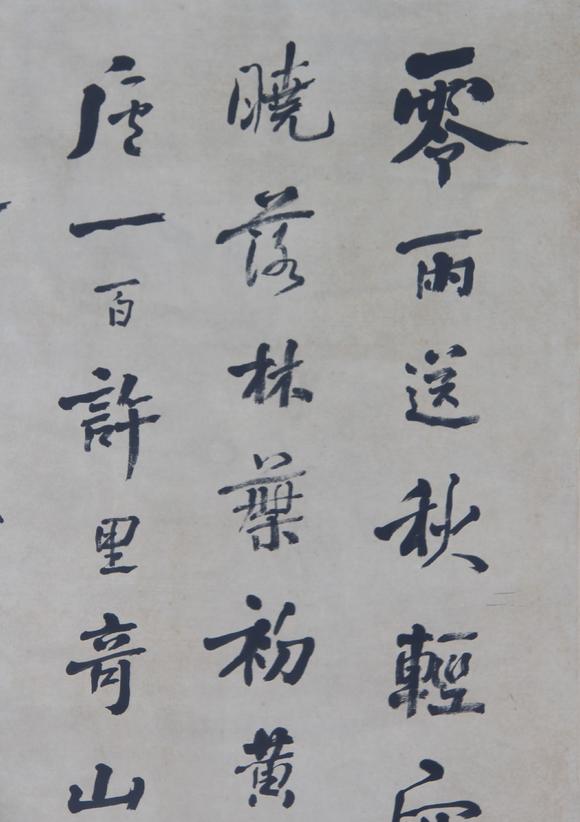 零雨送秋輕
曉落林葉初黃
廬一百許里竒山